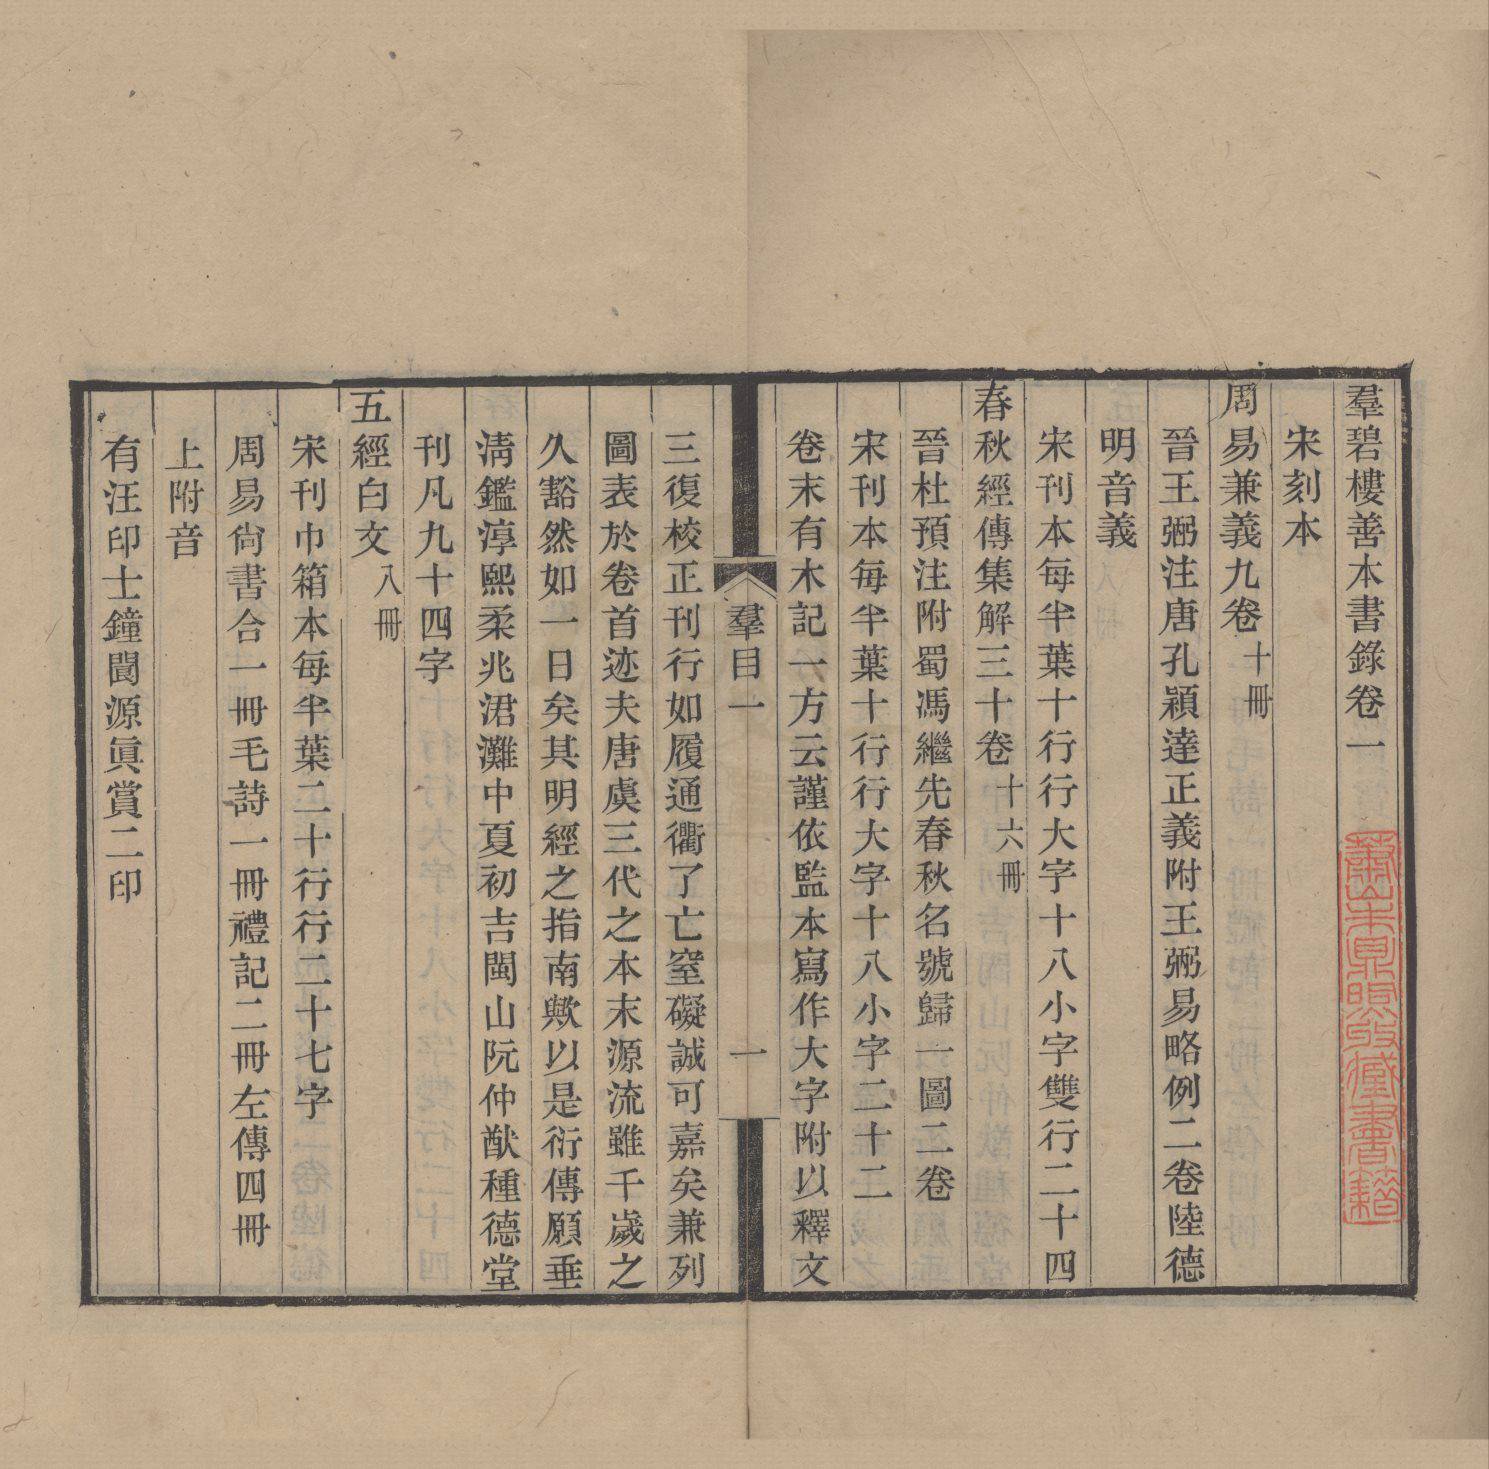 羣碧樓善本書錄卷一
宋刻本
周易兼義九卷十冊
晉王弼注唐孔穎達正義附王弼易略例二卷陸德
明音義
宋刊本每半葉十行行大字十八小字雙行二十四
春秋經傳集解三十卷十六冊
晉杜預注附蜀馮繼先春秋名號歸一圖二卷
宋刊本每半葉十行行大字十八小字二十二
卷末有木記一方云謹依監本寫作大字附以釋文
羣目一
一
三復校正刊行如履通衢了亡窒礙誠可嘉矣兼列
圖表於卷首迹夫唐虞三代之本末源流雖千歲之
久豁然如一日矣其明經之指南歟以是衍傳願垂
淸鑑淳熙柔兆涒灘中夏初吉閩山阮仲猷種德堂
刊凡九十四字
五經白文八冊
宋刊巾箱本每半葉二十行行二十七字
周易尙書合一冊毛詩一冊禮記二冊左傳四冊
上附音
有汪印士鐘閬源眞賞二印